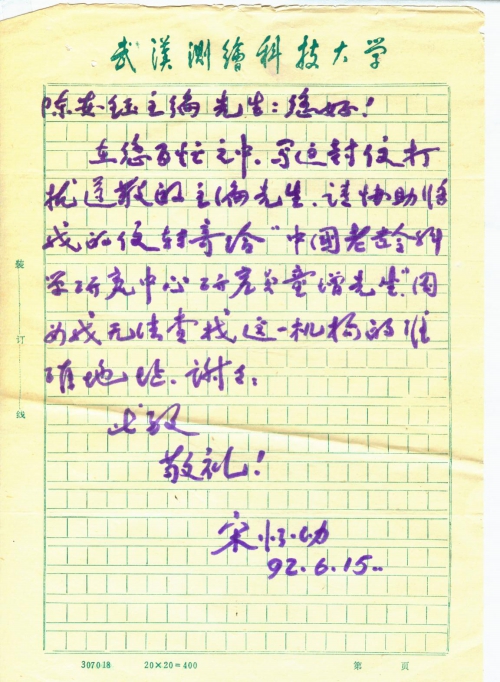 武漢測繪科技大学
陈 主编先生:您好!
在您百忙之中,写这封信打
扰道敬的主编先生,请协助将
我的信转寄给“中国老龄科
学研究中心研究员童增先生”,因
为我无法查找这一机构的准
确地址。谢谢:
此致
敬礼!
宋 幼
92.6.15.
装
订
线
307018 20×20=400 第 页